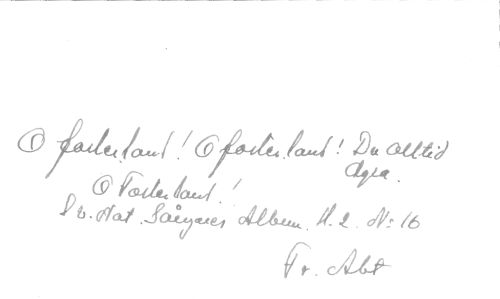 O fosterland! O fosterland! Du alltid
äga.
O Fosterland!
Sv. Nat. Sångares Album. H. 2. No: 16
Fr. Abt